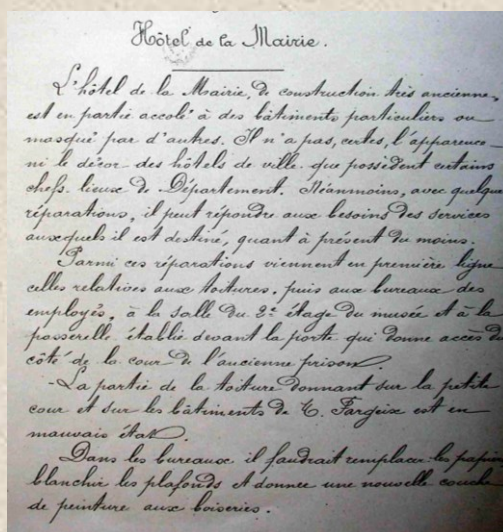 Hôtel de la Mairie.
L'hôtel de la Mairie, de construction très ancienne,
est en partie accolé à des bâtiments particuliers ou
masqué par d'autres. Il n'a pas, certes, l'apparence
ni le décor des hôtels de ville que possèdent certains
chefs-lieux de Département. Néanmoins, avec quelques
réparations, il peut répondre aux besoins des services
auxquels il est destiné, quant à présent du moins.
Parmi ces réparations viennent en première ligne
celles relatives aux toitures, puis aux bureaux des
employés, à la salle du 2e étage du musée et à la
passerelle établie devant la porte qui donne accès du
côté de la cour de l'ancienne prison.
- La partie de la toiture donnant sur la petite
cour et sur les bâtiments de Fargeix est en
mauvais état.
Dans les bureaux il faudrait remplacer les papiers
blanchir les plafonds et donner une nouvelle couche
de peinture aux boiseries.